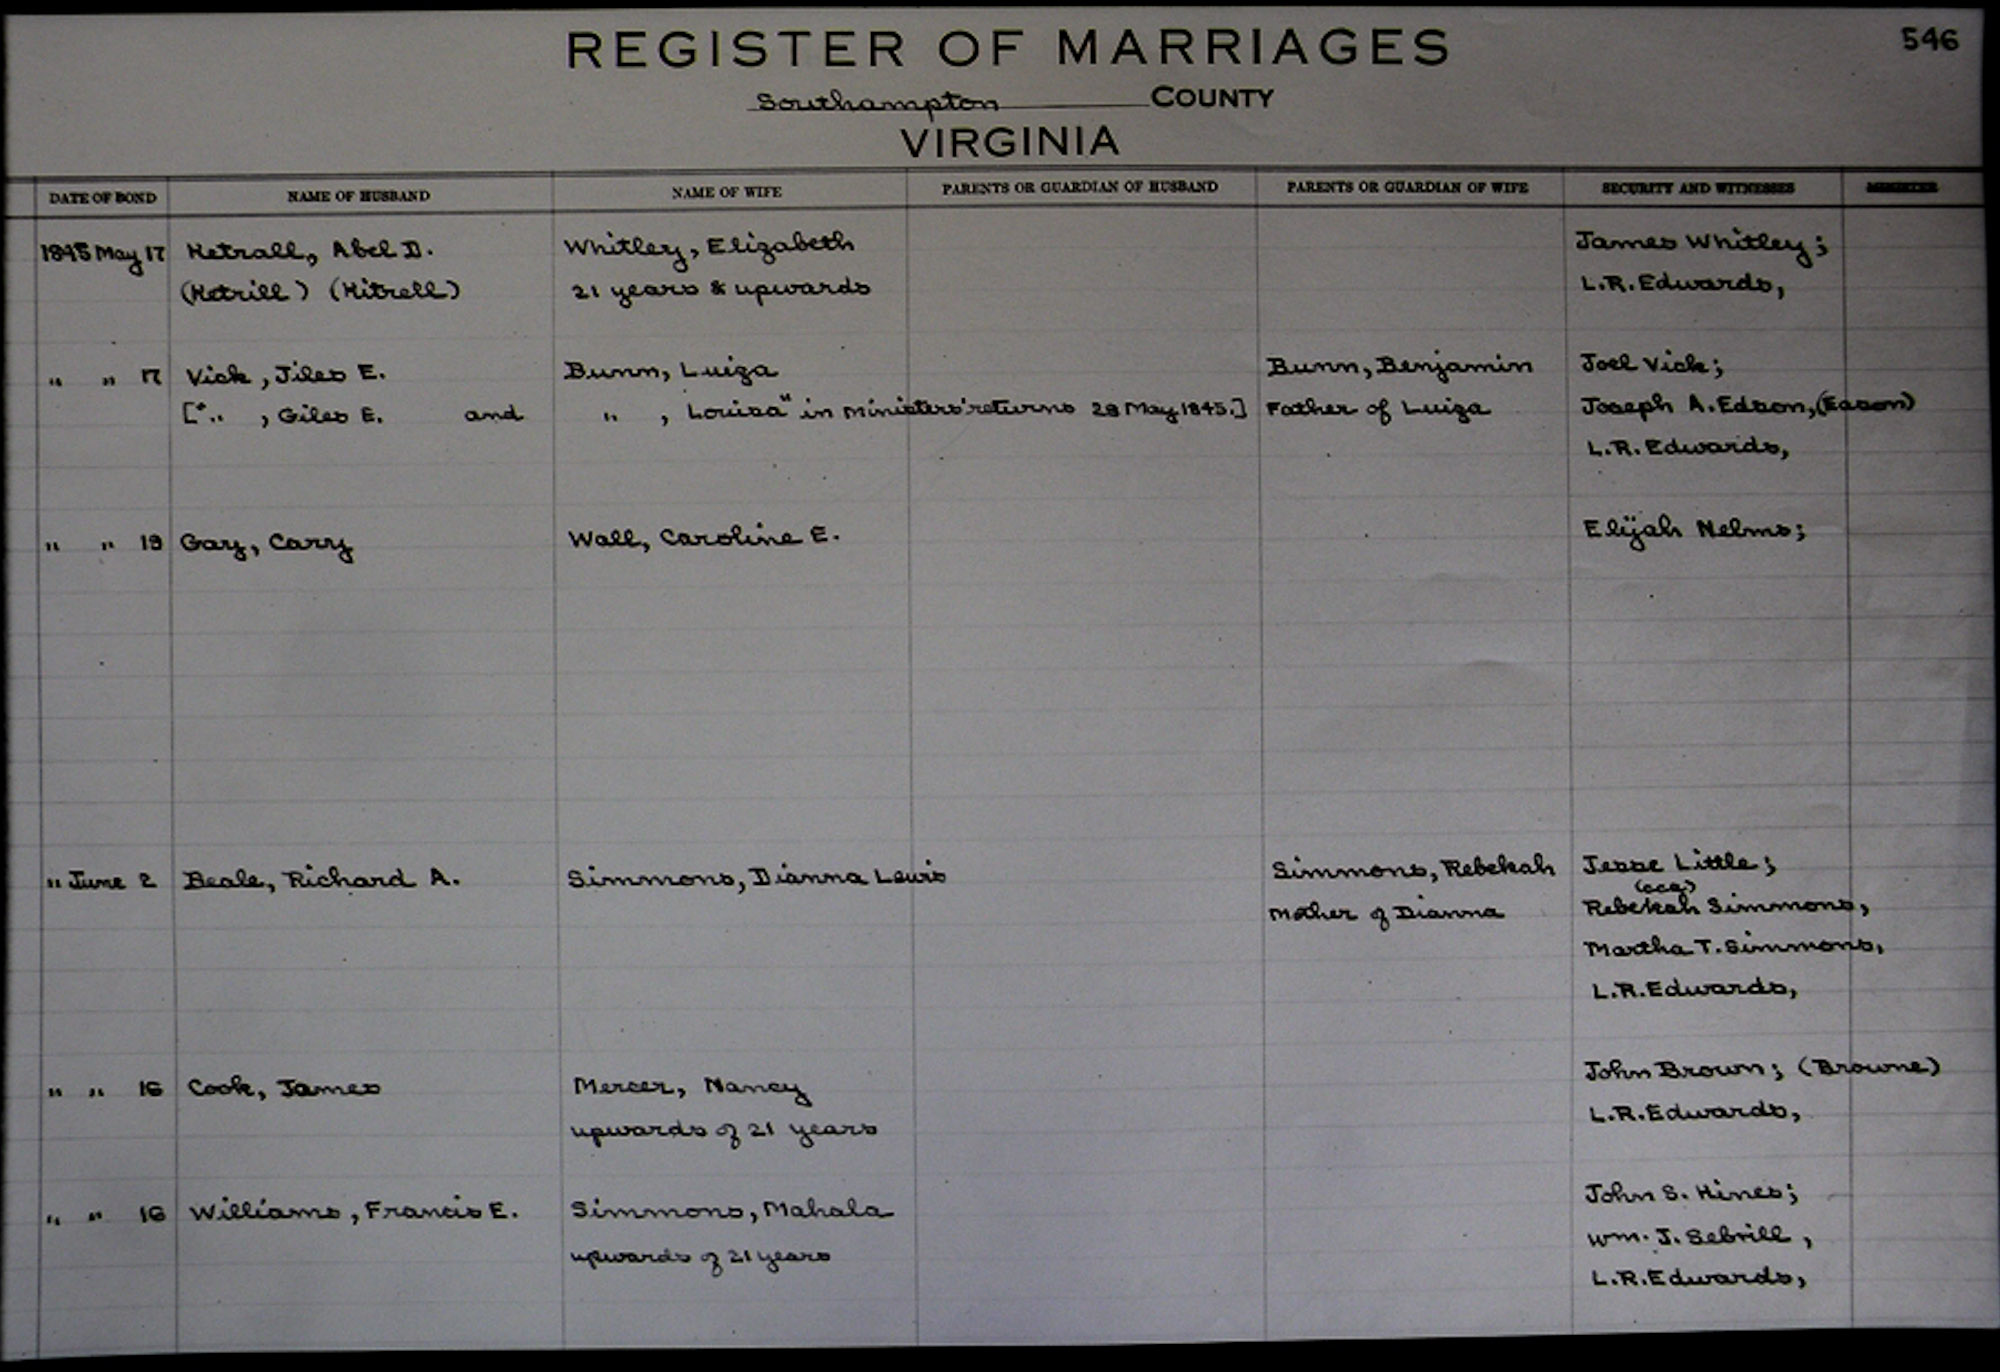 546
REGISTER OF MARRIAGES
Southampton COUNTY
VIRGINIA
DATE OF BOND NAME OF HUSBAND NAME OF WIFE PARENTS OR GUARDIAN OF HUSBAND PARENTS OR GUARDIAN OF WIFE SECURITY AND WITNESSES MINISTER
1845 May 17 Hetrall, Abel D. Whitley, Elizabeth James Whitley;
(Hetrill) (Hitrell) 21 years & upwards L.R. Edwards,
" " 17 Vick, Jiles E. Bunn, Luiza Bunn, Benjamin Joel Vick;
[".. , Giles E. and " , Louisa" in Ministers' returns 28 May 1845.] Father of Luiza Joseph A. Edson, (Eason)
L.R. Edwards,
" " 19 Gary, Carry Wall, Caroline E. Elijah Nelms;
" June 2 Beale, Richard A. Simmons, Dianna Lewis Simmons, Rebekah Jesse Little;
(cca)
Mother of Dianna Rebekah Simmons,
Martha T. Simmons,
L.R. Edwards,
" " 16 Cook, James Mercer, Nancy John Brown; (Browne)
upwards of 21 years L.R. Edwards,
" " 16 Williams, Francis E. Simmons, Mahala John S. Hines;
upwards of 21 years Wm. J. Sebrill,
L.R. Edwards,